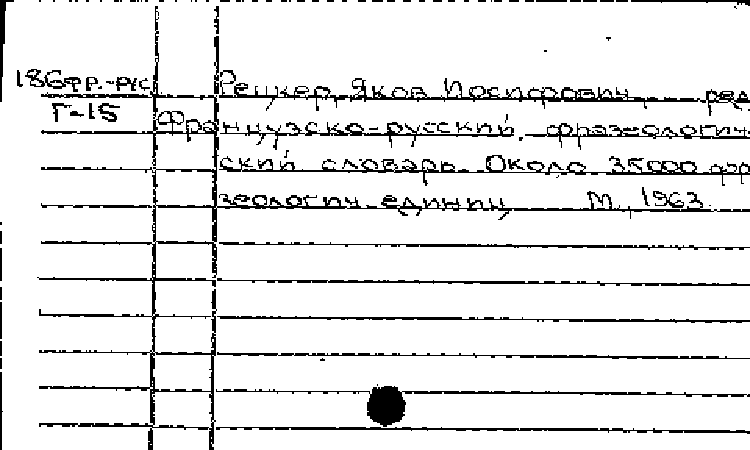 18Бфр.-рус Рецкер, Яков Иосифович, ред
Г-15 Французско-русский фразеологич
ский словарь. Около 35000 фра
зеологич. единиц М., 1963